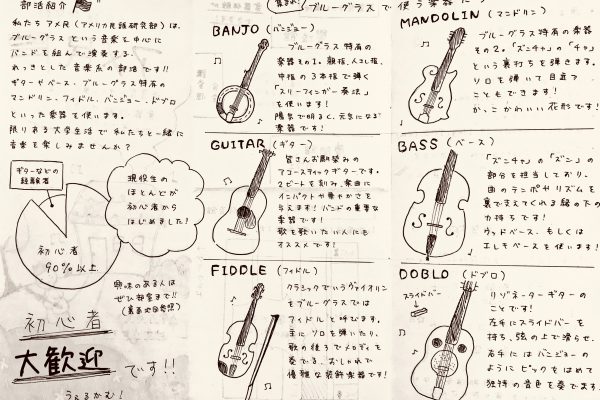 部活紹介
私たち アメ民(アメリカ民謡研究部)は、
ブルーグラス という音楽を中心に
バンドを組んで演奏する、
れっきとした音楽系の部活です!!
ギターやベース、ブルーグラス特有の
マンドリン、フィドル、バンジョー、ドブロ
といった楽器を使います。
限りある大学生活で 私たちと一緒に
音楽を楽しみませんか?
ギターなどの
経験者
初心者
90%以上
現役生の
ほとんどが
初心者から
はじめました!
興味のある人は
ぜひ部室まで!!
(裏面地図参照)
初心者
大歓迎 です!!
うぇるかむ!
ブルーグラスで使う楽器
BANJO (バンジョー)
ブルーグラス特有の
楽器その1。親指、人さし指、
中指の3本指で弾く
「スリーフィンガー奏法」
を使います!
陽気で明るく、元気になる
楽器です!
GUITAR (ギター)
皆さんお馴染みの
アコースティックギターです。
2ビートを刻み、楽曲に
インパクトや華やかさを
与えます! バンドの重要な
楽器です!
歌を歌いたい人にも
オススメです!
FIDDLE (フィドル)
クラシックでいうヴァイオリン
をブルーグラスでは
フィドルと呼びます。
主にソロを弾いたり、
歌の後ろでメロディを
奏でる、おしゃれで
優雅な装飾楽器です!
MANDOLIN (マンドリン)
ブルーグラス特有の楽器
その2。「ズンチャ」の「チャ」
という裏打ちを弾きます。
ソロを弾いて目立つ
こともできます!
か、こかわいい花形です!
BASS (ベース)
「ズンチャ」の「ズン」の
部分を担当しており、
曲のテンポやリズムを
裏で支えてくれる縁の下の
力持ちです!
ウッドベース、もしくは
エレキベースを使います!
DOBLO (ドブロ)
スライドバー
リゾネーターギターの
ことです!
左手にスライドバーを
持ち、弦の上で滑らせ、
右手にはバンジョーの
ようにピックをはめて
独特の音色を奏でます。